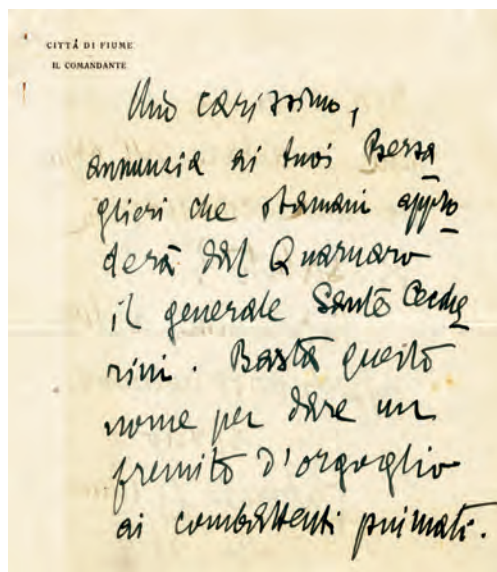 CITTÀ DI FIUME
IL COMANDANTE
Mio carissimo,
annunzia ai tuoi Bersa
glieri che stamani appro
derà dal Quarnaro
il generale Santo Cecche
rini. Basta questo
nome per dare un
fremito d'orgoglio
ai combattenti piumati.